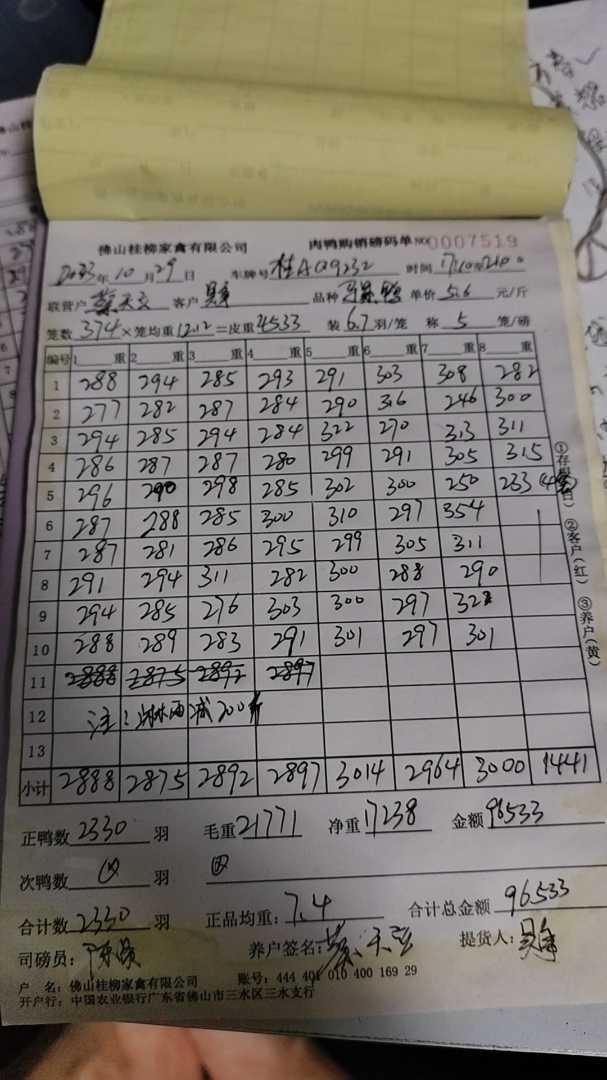 佛山桂柳家禽有限公司 肉鸭购销磅码单 NO 0007519
2023年10月29日 车牌号 桂AQ9232 时间
联营户 客户 品种 单价 5.6 元/斤
笼数 374 ×笼均重 12.12 =皮重 4533 装 6.7 羽/笼 称 5 笼/磅
编号 1 重 2 重 3 重 4 重 5 重 6 重 7 重 8 重
1 288 294 285 293 291 303 308 282
2 277 282 287 284 290 316 246 300
3 294 285 294 284 322 290 313 311
4 286 287 287 280 299 291 305 315
5 296 290 298 285 302 300 250 233
6 287 288 285 300 310 297 354
7 287 281 286 295 299 305 311
8 291 294 311 282 300 288 290
9 294 285 276 303 300 297 322
10 288 289 283 291 301 297 301
11 2888 2875 2892 2897
12 注:淋雨减200斤
13
小计 2888 2875 2892 2897 3014 2964 3000 1441
正鸭数 2330 羽 毛重 21771 净重 17238 金额 96533
次鸭数 羽
合计数 2330 羽 正品均重: 7.4 合计总金额 96533
司磅员: 养户签名: 提货人:
户 名: 佛山桂柳家禽有限公司 账号: 444 401 010 400 169 29
开户行: 中国农业银行广东省佛山市三水区三水支行
①存根(白) ②客户(红) ③养户(黄)